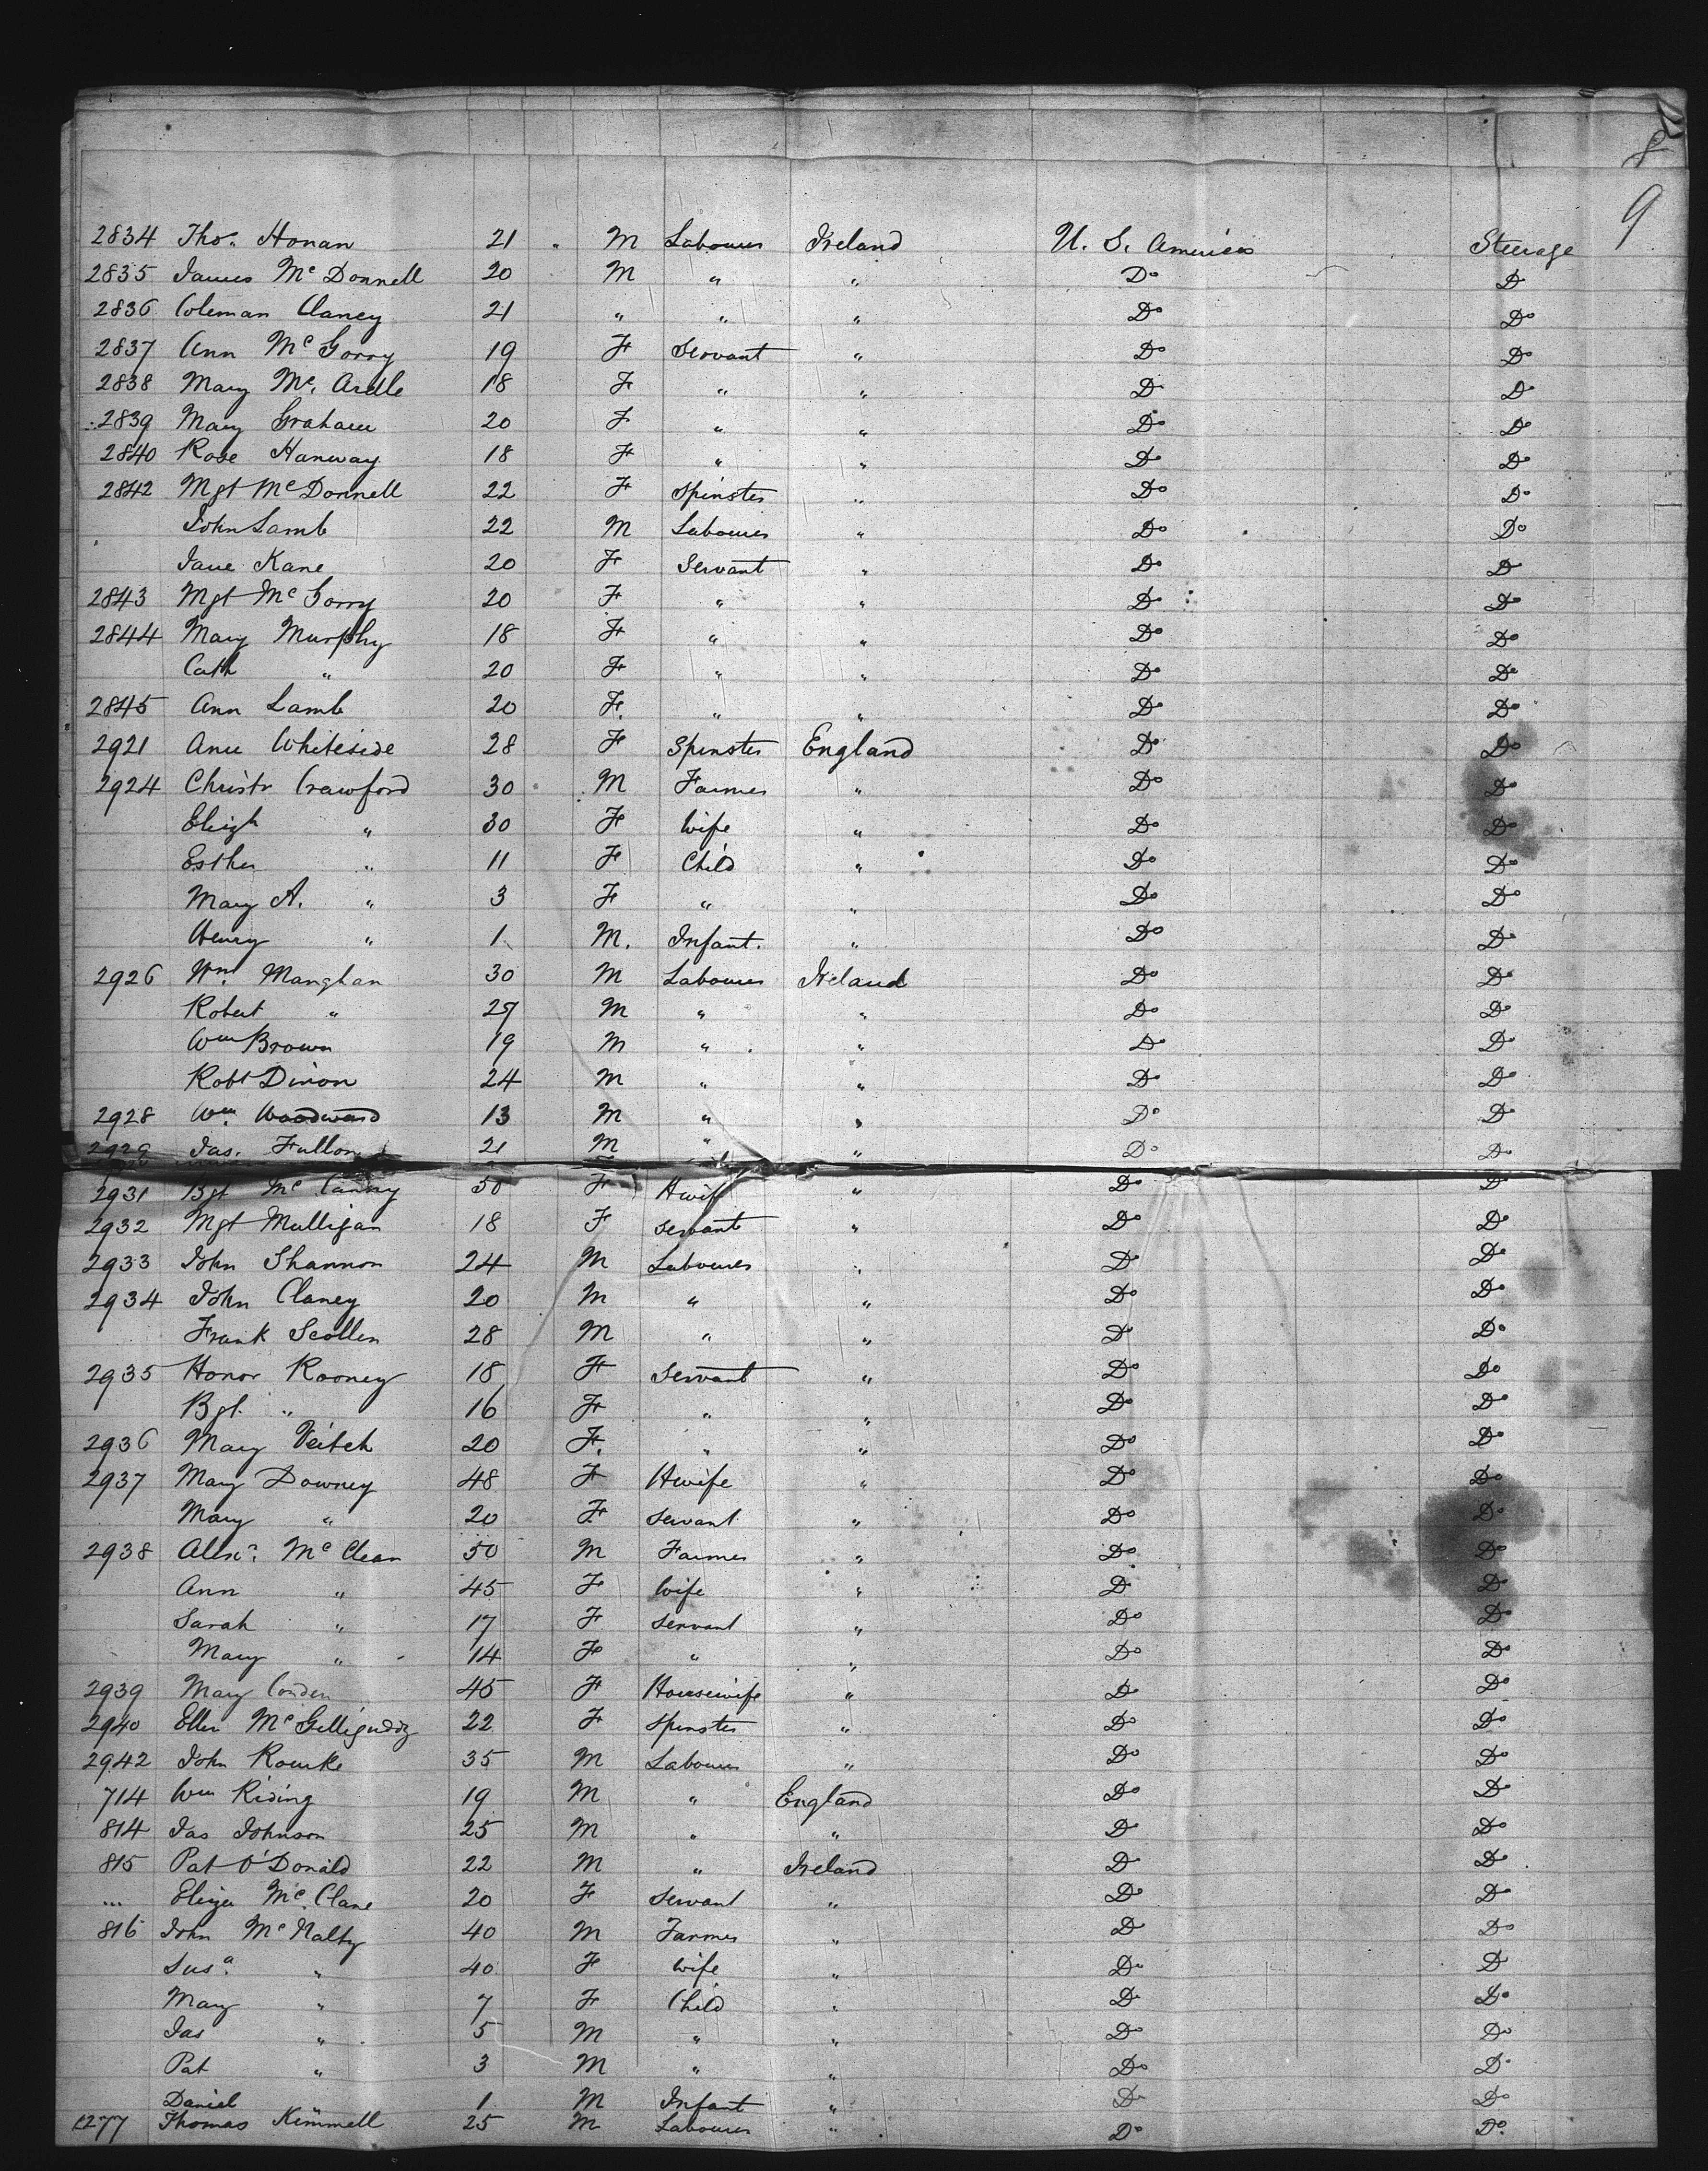 8
9
2834 Thos. Honan 21 " M Labourer Ireland U. S. America Steerage
2835 James McDonnell 20 M " " Do Do
2836 Coleman Clancy 21 " " " Do Do
2837 Ann McGorry 19 F Servant " Do Do
2838 Mary Mc. Ardle 18 F " " Do Do
2839 Mary Graham 20 F " " Do Do
2840 Rose Hanway 18 F " " Do Do
2842 Mgt McDonnell 22 F Spinster " Do Do
John Lamb 22 M Labourer " Do Do
Jane Kane 20 F Servant " Do Do
2843 Mgt McGorry 20 F " " Do Do
2844 Mary Murphy 18 F " " Do Do
Cath " 20 F " " Do Do
2845 Ann Lamb 20 F. " " Do Do
2921 Ann Whiteside 28 F Spinster England Do Do
2924 Christr Crawford 30 M Farmer " Do Do
Elizh " 30 F Wife " Do Do
Esther " 11 F Child " Do Do
Mary A. " 3 F " " Do Do
Henry " 1 M. Infant. " Do Do
2926 Wm. Manghan 30 M Labourer Ireland Do Do
Robert " 27 M " " Do Do
Wm Brown 19 M " " Do Do
Robt Dixon 24 M " " Do Do
2928 Wm. Woodward 13 M " " Do Do
2929 Jas. Fullon 21 M " " Do Do
2931 Bgt Mc 50 F Hwife " Do Do
2932 Mgt Mulligan 18 F Servant " Do Do
2933 John Shannon 24 M Labourer " Do Do
2934 John Clancy 20 M " " Do Do
Frank Scollen 28 M " " Do Do
2935 Honor Rooney 18 F Servant " Do Do
Bgt. " 16 F " " Do Do
2936 Mary Veitch 20 F. " " Do Do
2937 Mary Downey 48 F Hwife " Do Do
Mary " 20 F Servant " Do Do
2938 Alexr. McClean 50 M Farmer " Do Do
Ann " 45 F Wife " Do Do
Sarah " 17 F Servant " Do Do
Mary " 14 F " " Do Do
2939 Mary Conden 45 F Housewife " Do Do
2940 Ellen 22 F Spinster " Do Do
2942 John Rourke 35 M Labourer " Do Do
714 Wm Riding 19 M " England Do Do
814 Jas Johnson 25 M " " Do Do
815 Pat O'Donald 22 M " Ireland Do Do
... Eliza Mc. Clane 20 F Servant " Do Do
816 John McNalty 40 M Farmer " Do Do
Susa. " 40 F Wife " Do Do
Mary " 7 F Child " Do Do
Jas " 5 M " " Do Do
Pat " 3 M " " Do Do
Daniel 1 M Infant " Do Do
1277 Thomas Kimmell 25 M Labourer " Do Do